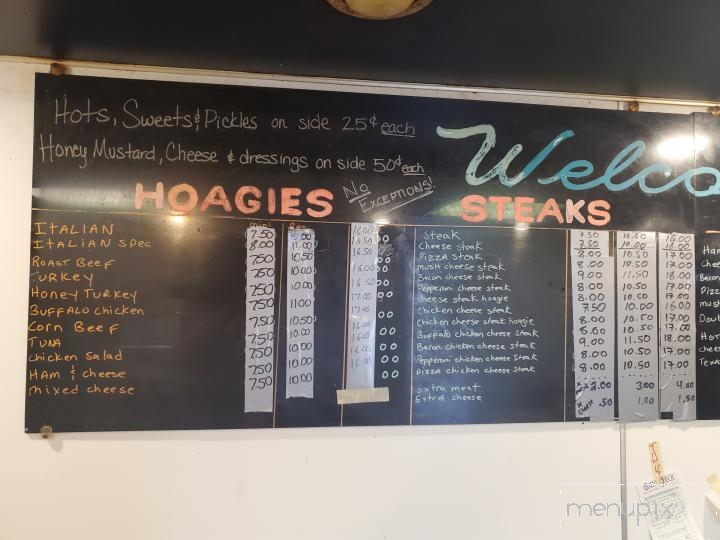 Hots, Sweets & Pickles on side 25¢ each
Honey Mustard, Cheese & dressings on side 50¢ each
No Exceptions!
Welco
HOAGIES
ITALIAN
ITALIAN Spec
ROAST BEEF
TURKEY
Honey TURKEY
BUFFALO chicken
Corn BEEF
TUNA
Chicken Salad
HAM & cheese
mixed cheese
mini Reg
7.50 10.00 16.00
8.00 11.00 16.50
7.50 10.50 16.50
7.50 10.00 16.00
7.50 10.00 16.50
7.50 11.00 17.00
7.50 10.50
7.50 10.00 16.00
7.50 10.00 16.00
7.50 10.00 16.00
7.50 10.00
STEAKS
Steak 7.50 10.00 16.00
Cheese steak 7.50 10.00 16.00
PIZZA steak 8.00 10.50 17.00
mush cheese steak 8.00 10.50 17.00
Bacon cheese steak 9.00 11.50 18.00
Pepperoni cheese steak 8.00 10.50 17.00
cheese steak hoagie 8.00 10.50 17.00
Chicken cheese steak 7.50 10.00 16.00
Chicken cheese steak hoagie 8.00 10.50 17.00
Buffalo chicken cheese steak 8.00 10.50 17.00
Bacon chicken cheese steak 9.00 11.50 18.00
Pepperoni chicken cheese steak 8.00 10.50 17.00
pizza chicken cheese steak 8.00 10.50 17.00
Extra meat 2.00 3.00 4.00
Extra cheese .50 1.00 1.50
Ham
Chee
Bacon
Pizz
mush
Dou
Hot
chees
Texa
menupix